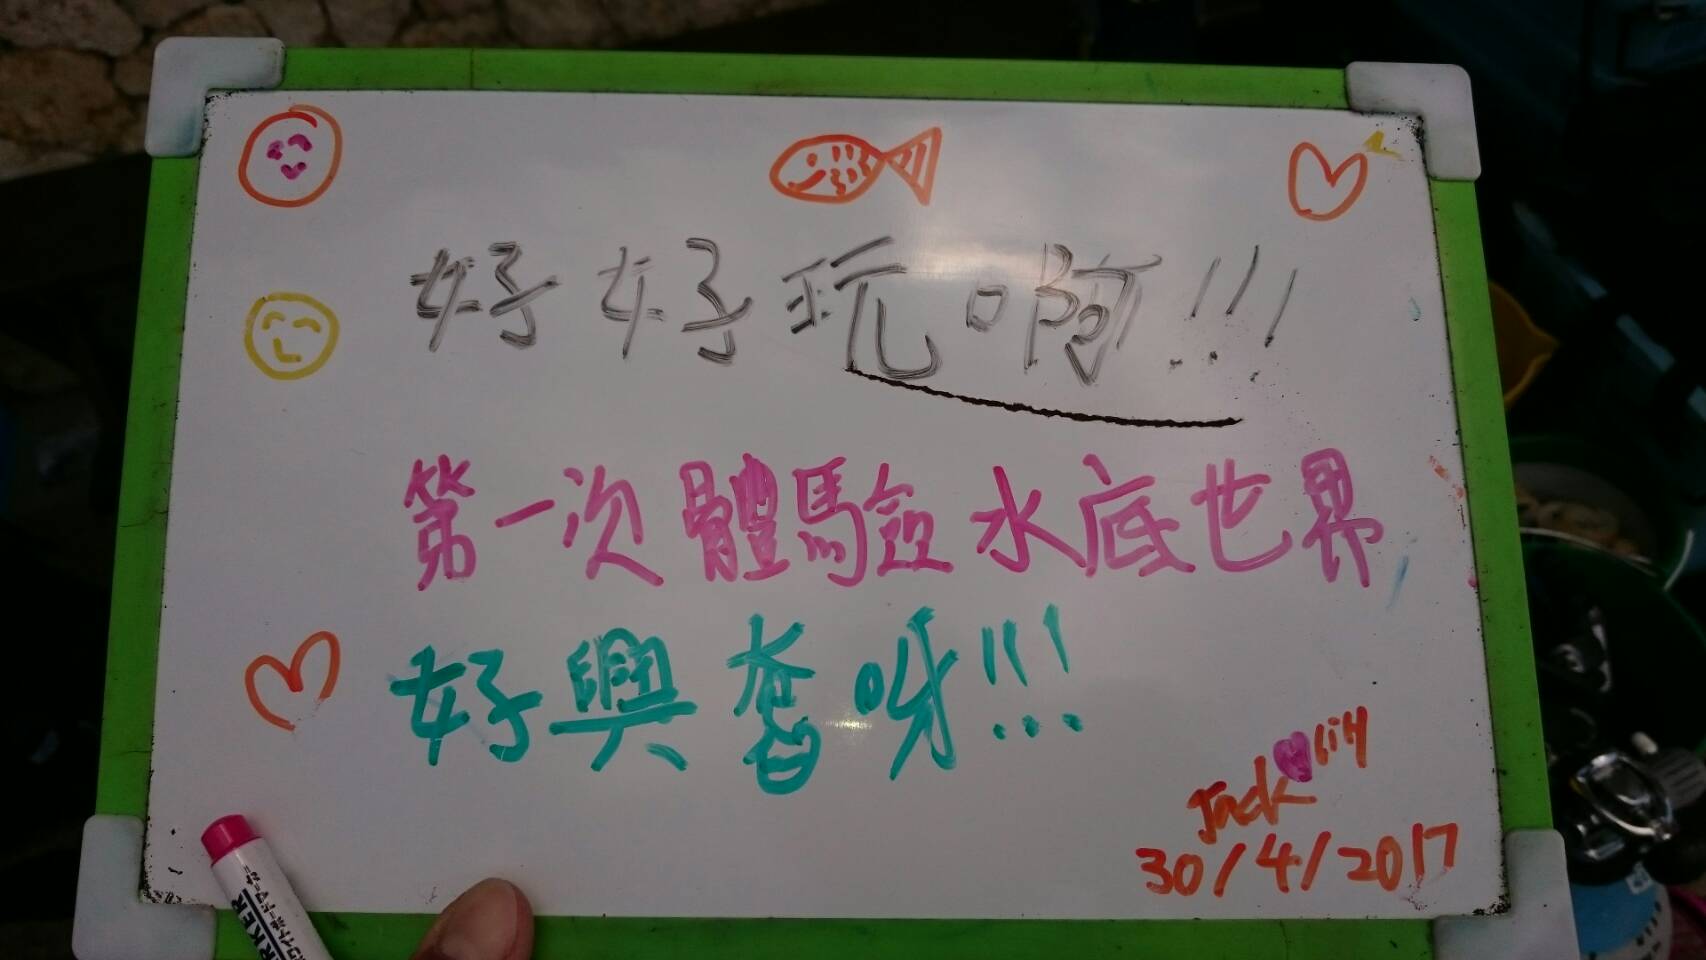 好好玩啊!!!
第一次體驗水底世界,
好興奮呀!!!
Jack lily
30/4/2017